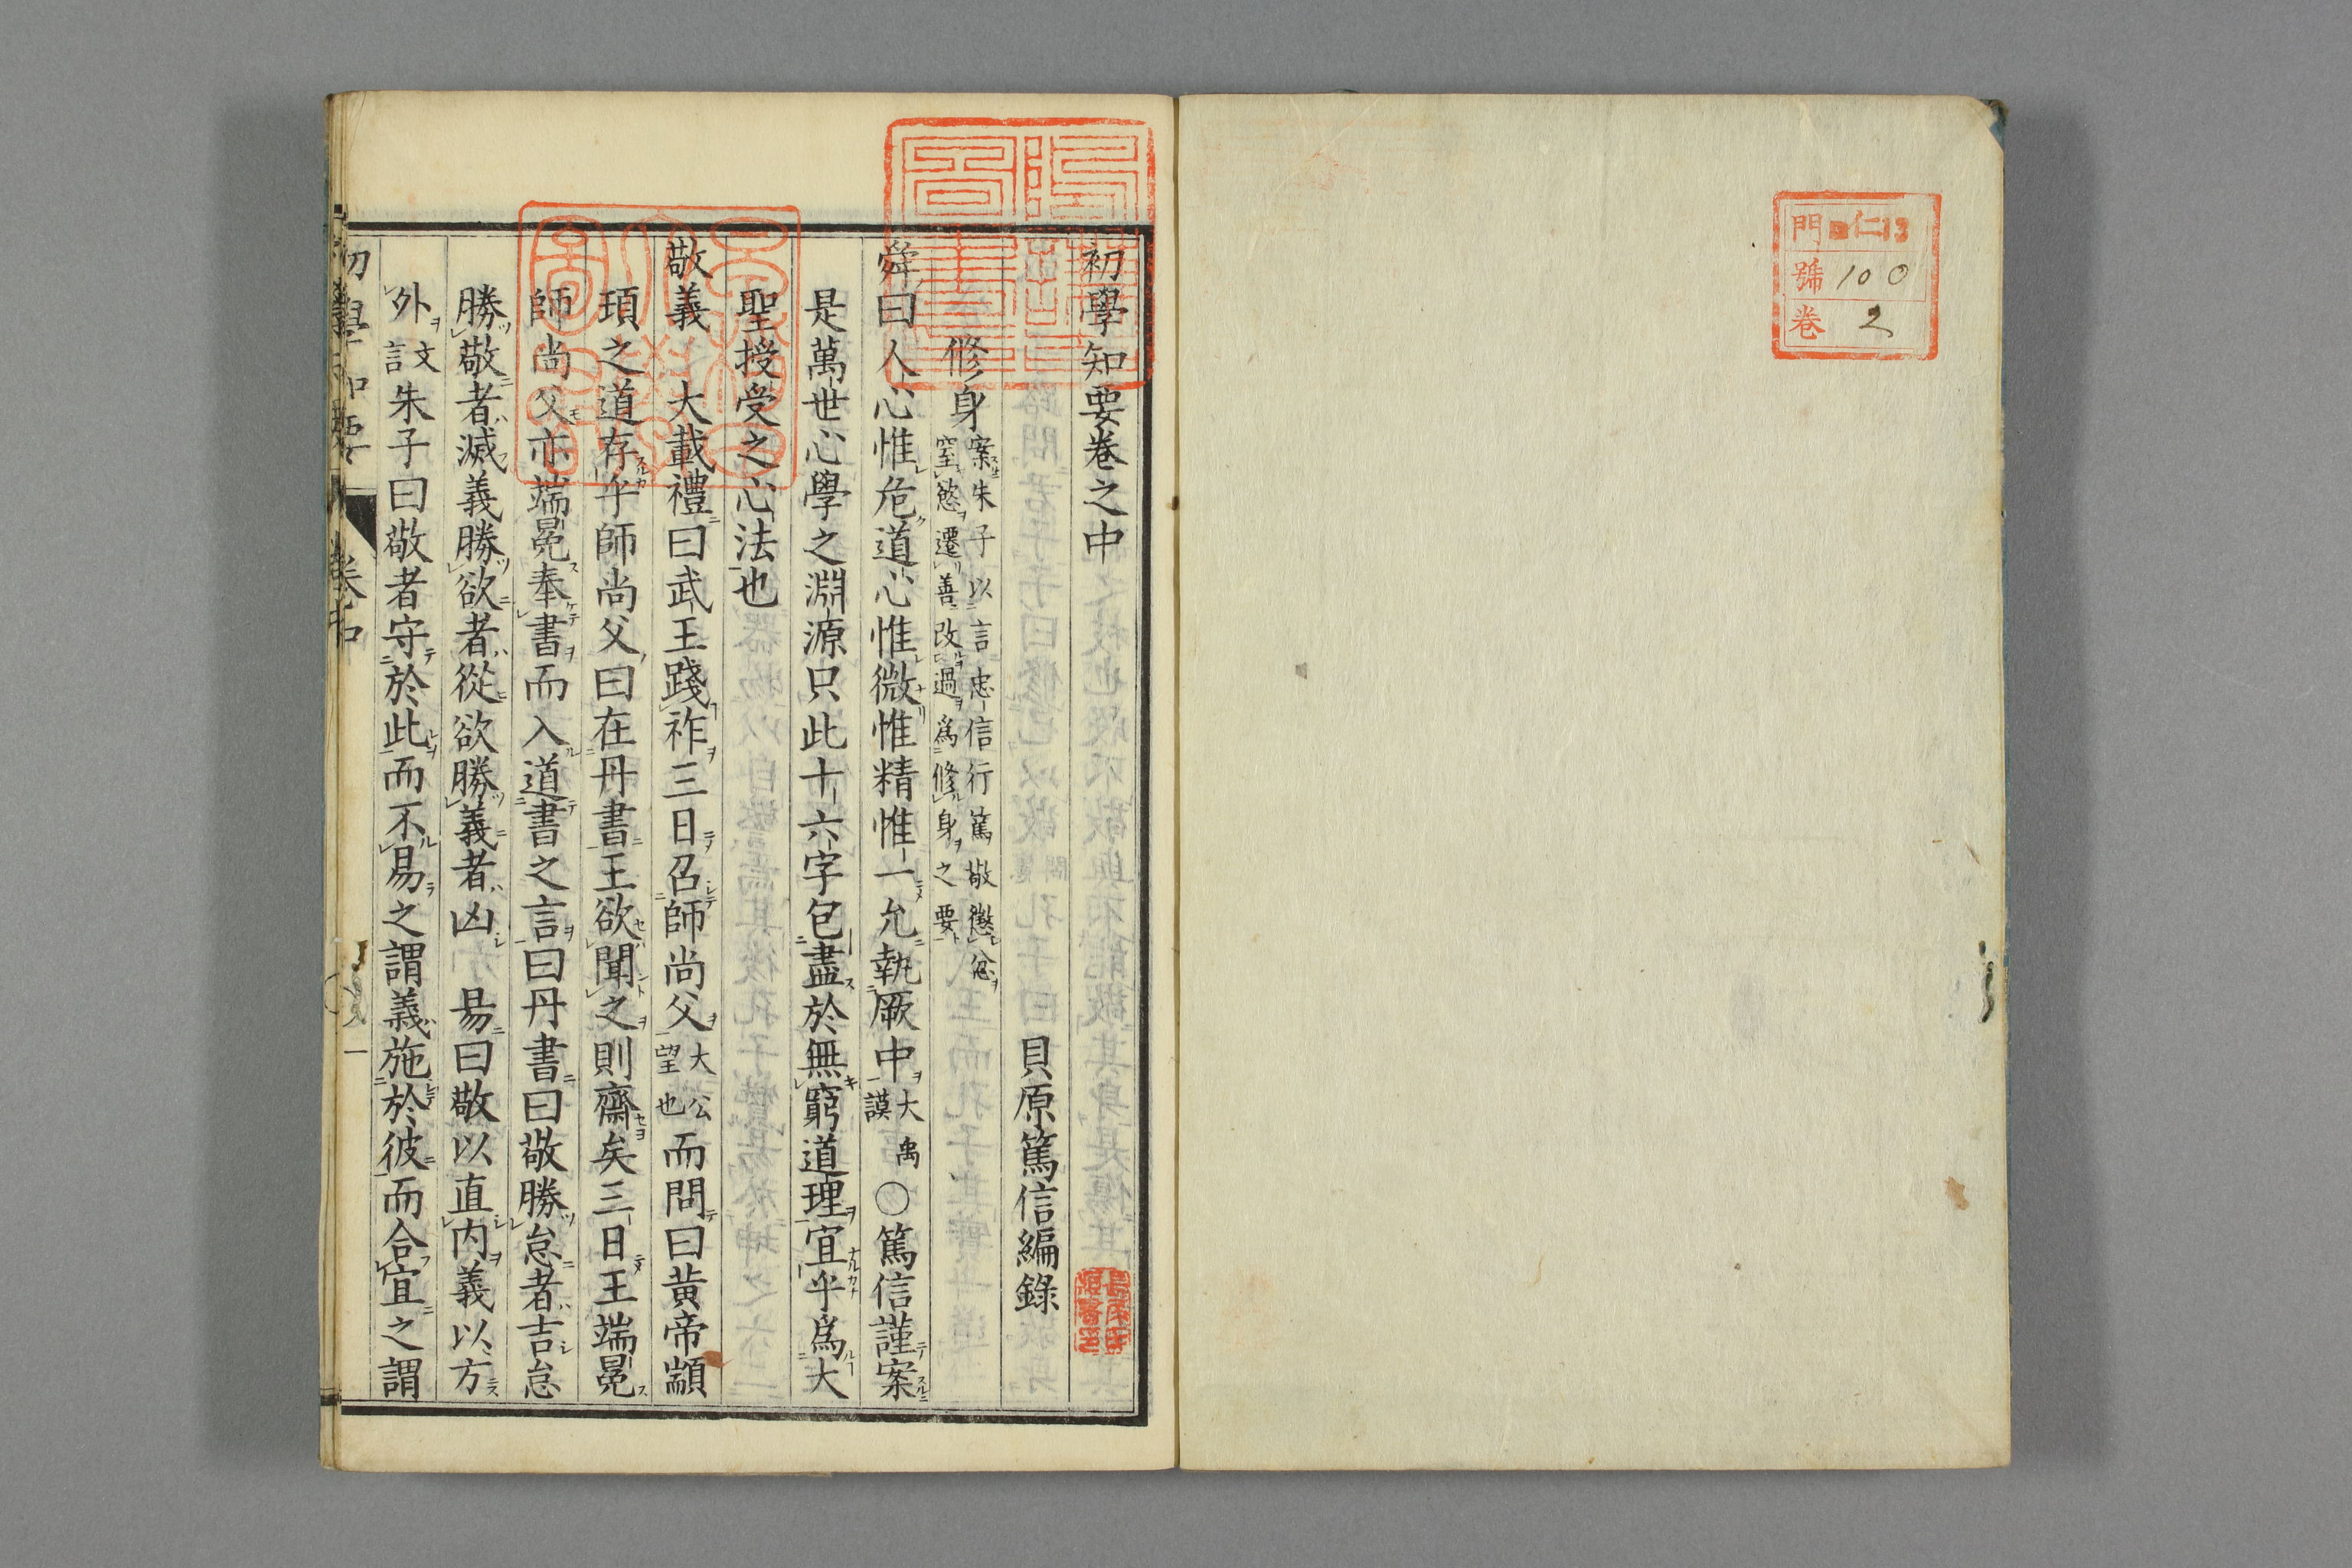 門 仁
號 100
卷 2
初學知要卷之中
貝原篤信編錄
修身 案朱子以言忠信行篤敬懲忿
窒慾遷善改過爲修身之要
舜曰人心惟危道心惟微惟精惟一允執厥中 大禹謨 ○篤信謹案
是萬世心學之淵源只此十六字包盡於無窮道理宜乎爲大
聖授受之心法也
敬義 大載禮曰武王踐祚三日召師尚父 大公望也 而問曰黃帝顓
頊之道存乎師尚父曰在丹書王欲聞之則齋矣三日王端冕
師尚父亦端冕奉書而入道書之言曰丹書曰敬勝怠者吉怠
勝敬者滅義勝欲者從欲勝義者凶 易曰敬以直內義以方
外 文言 朱子曰敬者守於此而不易之謂義施於彼而合宜之謂
初學知要 卷中 一